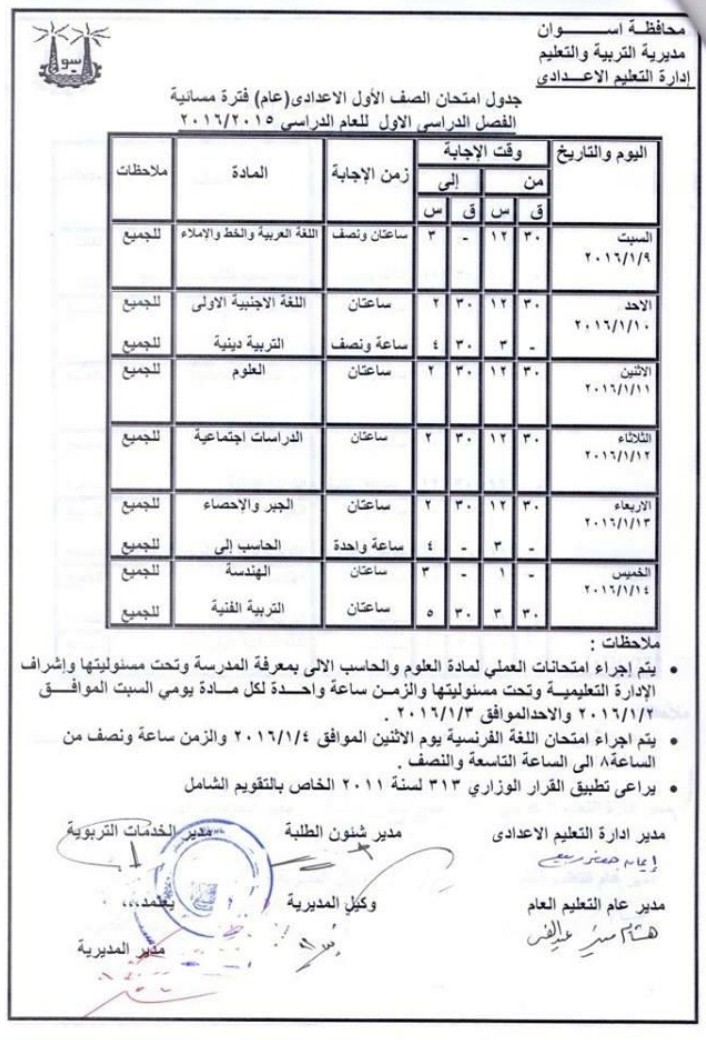 محافظة اســـــوان
مديرية التربية والتعليم
إدارة التعليم الاعـدادى
جدول امتحان الصف الأول الاعدادى(عام) فترة مسائية
الفصل الدراسى الاول للعام الدراسي ٢٠١٦/٢٠١٥
اليوم والتاريخ وقت الإجابة زمن الإجابة المادة ملاحظات
من إلى
ق س ق س
السبت ٣٠ ١٢ - ٣ ساعتان ونصف اللغة العربية والخط والإملاء للجميع
٢٠١٦/١/٩
الاحد ٣٠ ١٢ ٣٠ ٢ ساعتان اللغة الاجنبية الاولى للجميع
٢٠١٦/١/١٠
- ٣ ٣٠ ٤ ساعة ونصف التربية دينية للجميع
الاثنين ٣٠ ١٢ ٣٠ ٢ ساعتان العلوم للجميع
٢٠١٦/١/١١
الثلاثاء ٣٠ ١٢ ٣٠ ٢ ساعتان الدراسات اجتماعية للجميع
٢٠١٦/١/١٢
الاربعاء ٣٠ ١٢ ٣٠ ٢ ساعتان الجبر والإحصاء للجميع
٢٠١٦/١/١٣
- ٣ - ٤ ساعة واحدة الحاسب إلى للجميع
الخميس - ١ - ٣ ساعتان الهندسة للجميع
٢٠١٦/١/١٤
٣٠ ٣ ٣٠ ٥ ساعتان التربية الفنية للجميع
ملاحظات :
• يتم إجراء امتحانات العملي لمادة العلوم والحاسب الالى بمعرفة المدرسة وتحت مسئوليتها وإشراف
الإدارة التعليمية وتحت مسئوليتها والزمن ساعة واحدة لكل مادة يومي السبت الموافق
٢٠١٦/١/٢ والاحدالموافق ٢٠١٦/١/٣ .
• يتم اجراء امتحان اللغة الفرنسية يوم الاثنين الموافق ٢٠١٦/١/٤ والزمن ساعة ونصف من
الساعة٨ الى الساعة التاسعة والنصف .
• يراعى تطبيق القرار الوزاري ٣١٣ لسنة ٢٠١١ الخاص بالتقويم الشامل
مدير ادارة التعليم الاعدادى مدير شئون الطلبة مدير الخدمات التربوية
مدير عام التعليم العام وكيل المديرية يعتمد،،،
مدير المديرية